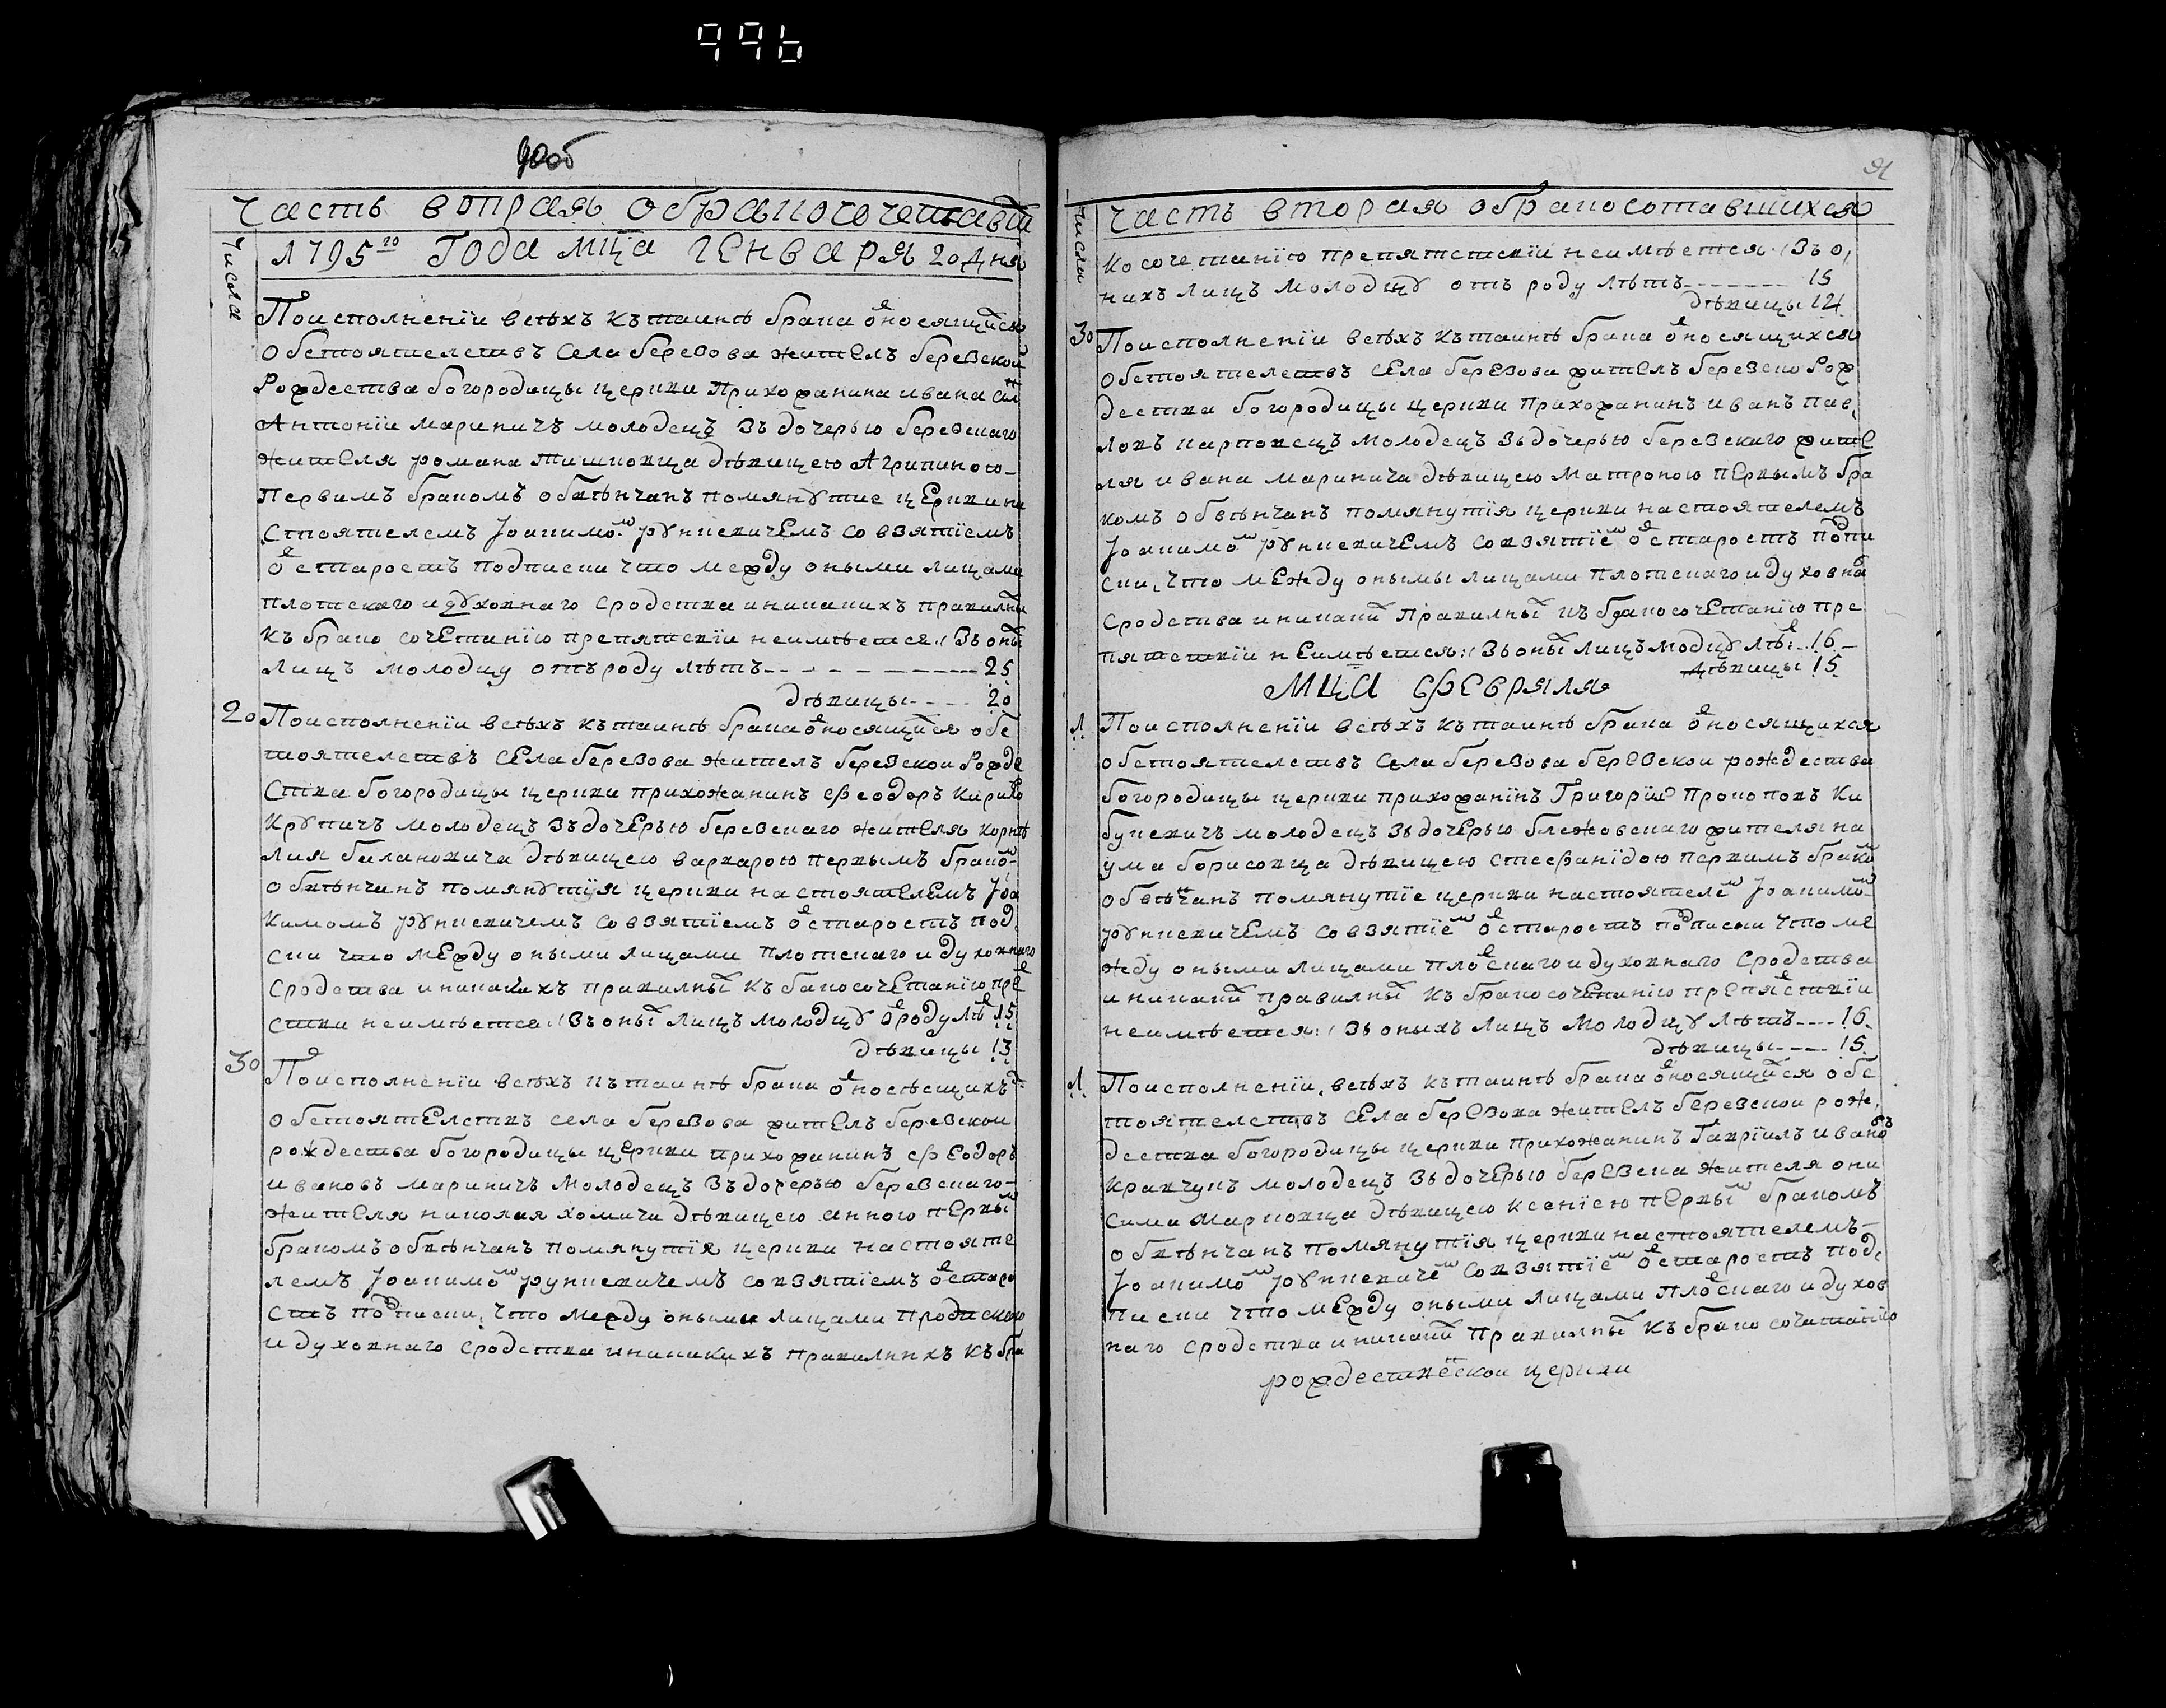 996
90об
Часть втораѧ обракосочетавш
1795го Года мца генваря 20 дня
Числа
По исполненіи всѣхъ къ таинѣ брака относящийся
обстоятелствъ села березова жителъ березской
Рождества богородицы церкви прихожанина ивана сын
Антоніи Мариничъ молодецъ зъ дочерью березскаго
жителя романа тишковца дѣвицею Агрипиною
Первимъ бракомъ обвѣнчанъ помянутие церкви на
стоятелемъ Іоакимом рункевичемъ со взятіемъ
от старостъ подписки что между оными лицами
плотскаго и духовнаго сродства и никакихъ правилни
къ брако сочетанію препятствіи неимѣется: Зъ оных
лицъ молодцу отъ роду лѣтъ 25
дѣвицы 20
20 По исполненіи всѣхъ къ таинѣ брака относящийся обс
тоятелствъ села березова жителъ березской Рожде
ства богородицы церкви прихожанинъ Ѳеодоръ Кирило
Крупичъ молодецъ зъ дочерью березскаго жителя корнѣ
лия балановича дѣвицею варварою первымъ браком
обвѣнчанъ помянутия церкви настоятелемъ Іоа
кимомъ рункевичемъ со взятіемъ от старостъ под
ски что между оными лицами плотскаго и духовнаго
сродства и никакихъ правилных къ бакосочетанію пре
ства неимѣется: Зъ оных лицъ молодцу от роду лѣт 15
дѣвицы 13
30 По исполненіи всѣхъ къ таинѣ брака относѣщихъ
обстоятелствъ села березова жителъ березской
рождества богородицы церкви прихожанинъ Ѳеодоръ
ивановъ мариничъ молодецъ зъ дочерью березскаго
жителя николая хомича дѣвицею анною первым
бракомъ обвѣнчанъ помянутія церкви настояте
лемъ Іоакимом рункевичемъ со взятіемъ от старо
стъ подписки, что между оными лицами
и духовнаго сродства и никакихъ правилнихъ къ бра
91
Числа
Часть вторая обракосотавшихся
ко сочетанію препятстскіи неимѣется: Зъ о,
нихъ лицъ молодцу отъ роду лѣтъ 15
дѣвицы 14
30 По исполненіи всѣхъ къ таинѣ брака относящихся
обстоятелствъ села березова жителъ березско Рож
дества богородицы церкви прихожанинъ иванъ пав,
ловъ карповецъ молодецъ зъ дочерью березскаго жите
ля ивана маринича дѣвицею Матроною первымъ бра
комъ обвѣнчанъ помянутія церкви настоятелемъ
Іоакимом рункевичемъ со взятіем от старостъ подпи
ски, что между онымы лицами плотскаго и духовна
сродства и никаких правилных къ бракосочетанію пре
пятствіи неимѣется: Зъ оных лицъ модцу лѣт 16
дѣвицы 15
Мца Февряля
1 По исполненіи всѣхъ къ таинѣ брака относящихся
обстоятелствъ села березова березской рождества
богородицы церкви прихожанінъ Григорій Прокоповъ Ки
букевичъ молодецъ зъ дочерью блежовскаго жителя на
ума борисовца дѣвицею стефанідою первимъ браком
обвѣнчанъ помянутіе церкви настоятелем Іоакимом
рункевичемъ со взятіем от старостъ подписки что ме
жду оными лицами плотскаго и духовнаго сродства
и никаких правилных къ бракосочетанію препятствіи
неимѣется: Зъ оныхъ лицъ молодцу лѣтъ 16
дѣвицы 15
1 По исполненіи, всѣхъ къ таинѣ брака относящийся обс
тоятелствъ села березова жителъ березской рож,
дества богородицы церкви прихожанинъ Гавріилъ ивановъ
кравчукъ молодецъ зъ дочерью березска жителя они
сима марковца дѣвицею ксеніею первым бракомъ
обвѣнчанъ помянутія церкви настоятелемъ
Іоакимом рункевичем со взятіем от старостъ под,
писки что между оными лицами плотскаго и духов
наго сродства и никаких правилных къ брако сочитанію
рождественской церкви